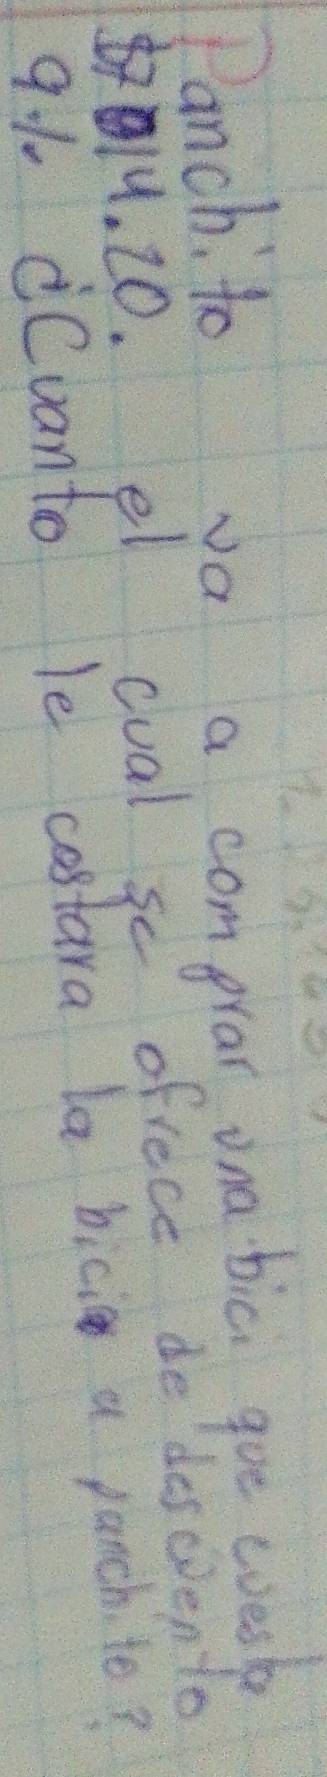 Panchito va a comprar una bici que cuesta
$ 14.20. el cual se ofrece de descuento
9% ¿Cuanto le costara la bici a panchito?